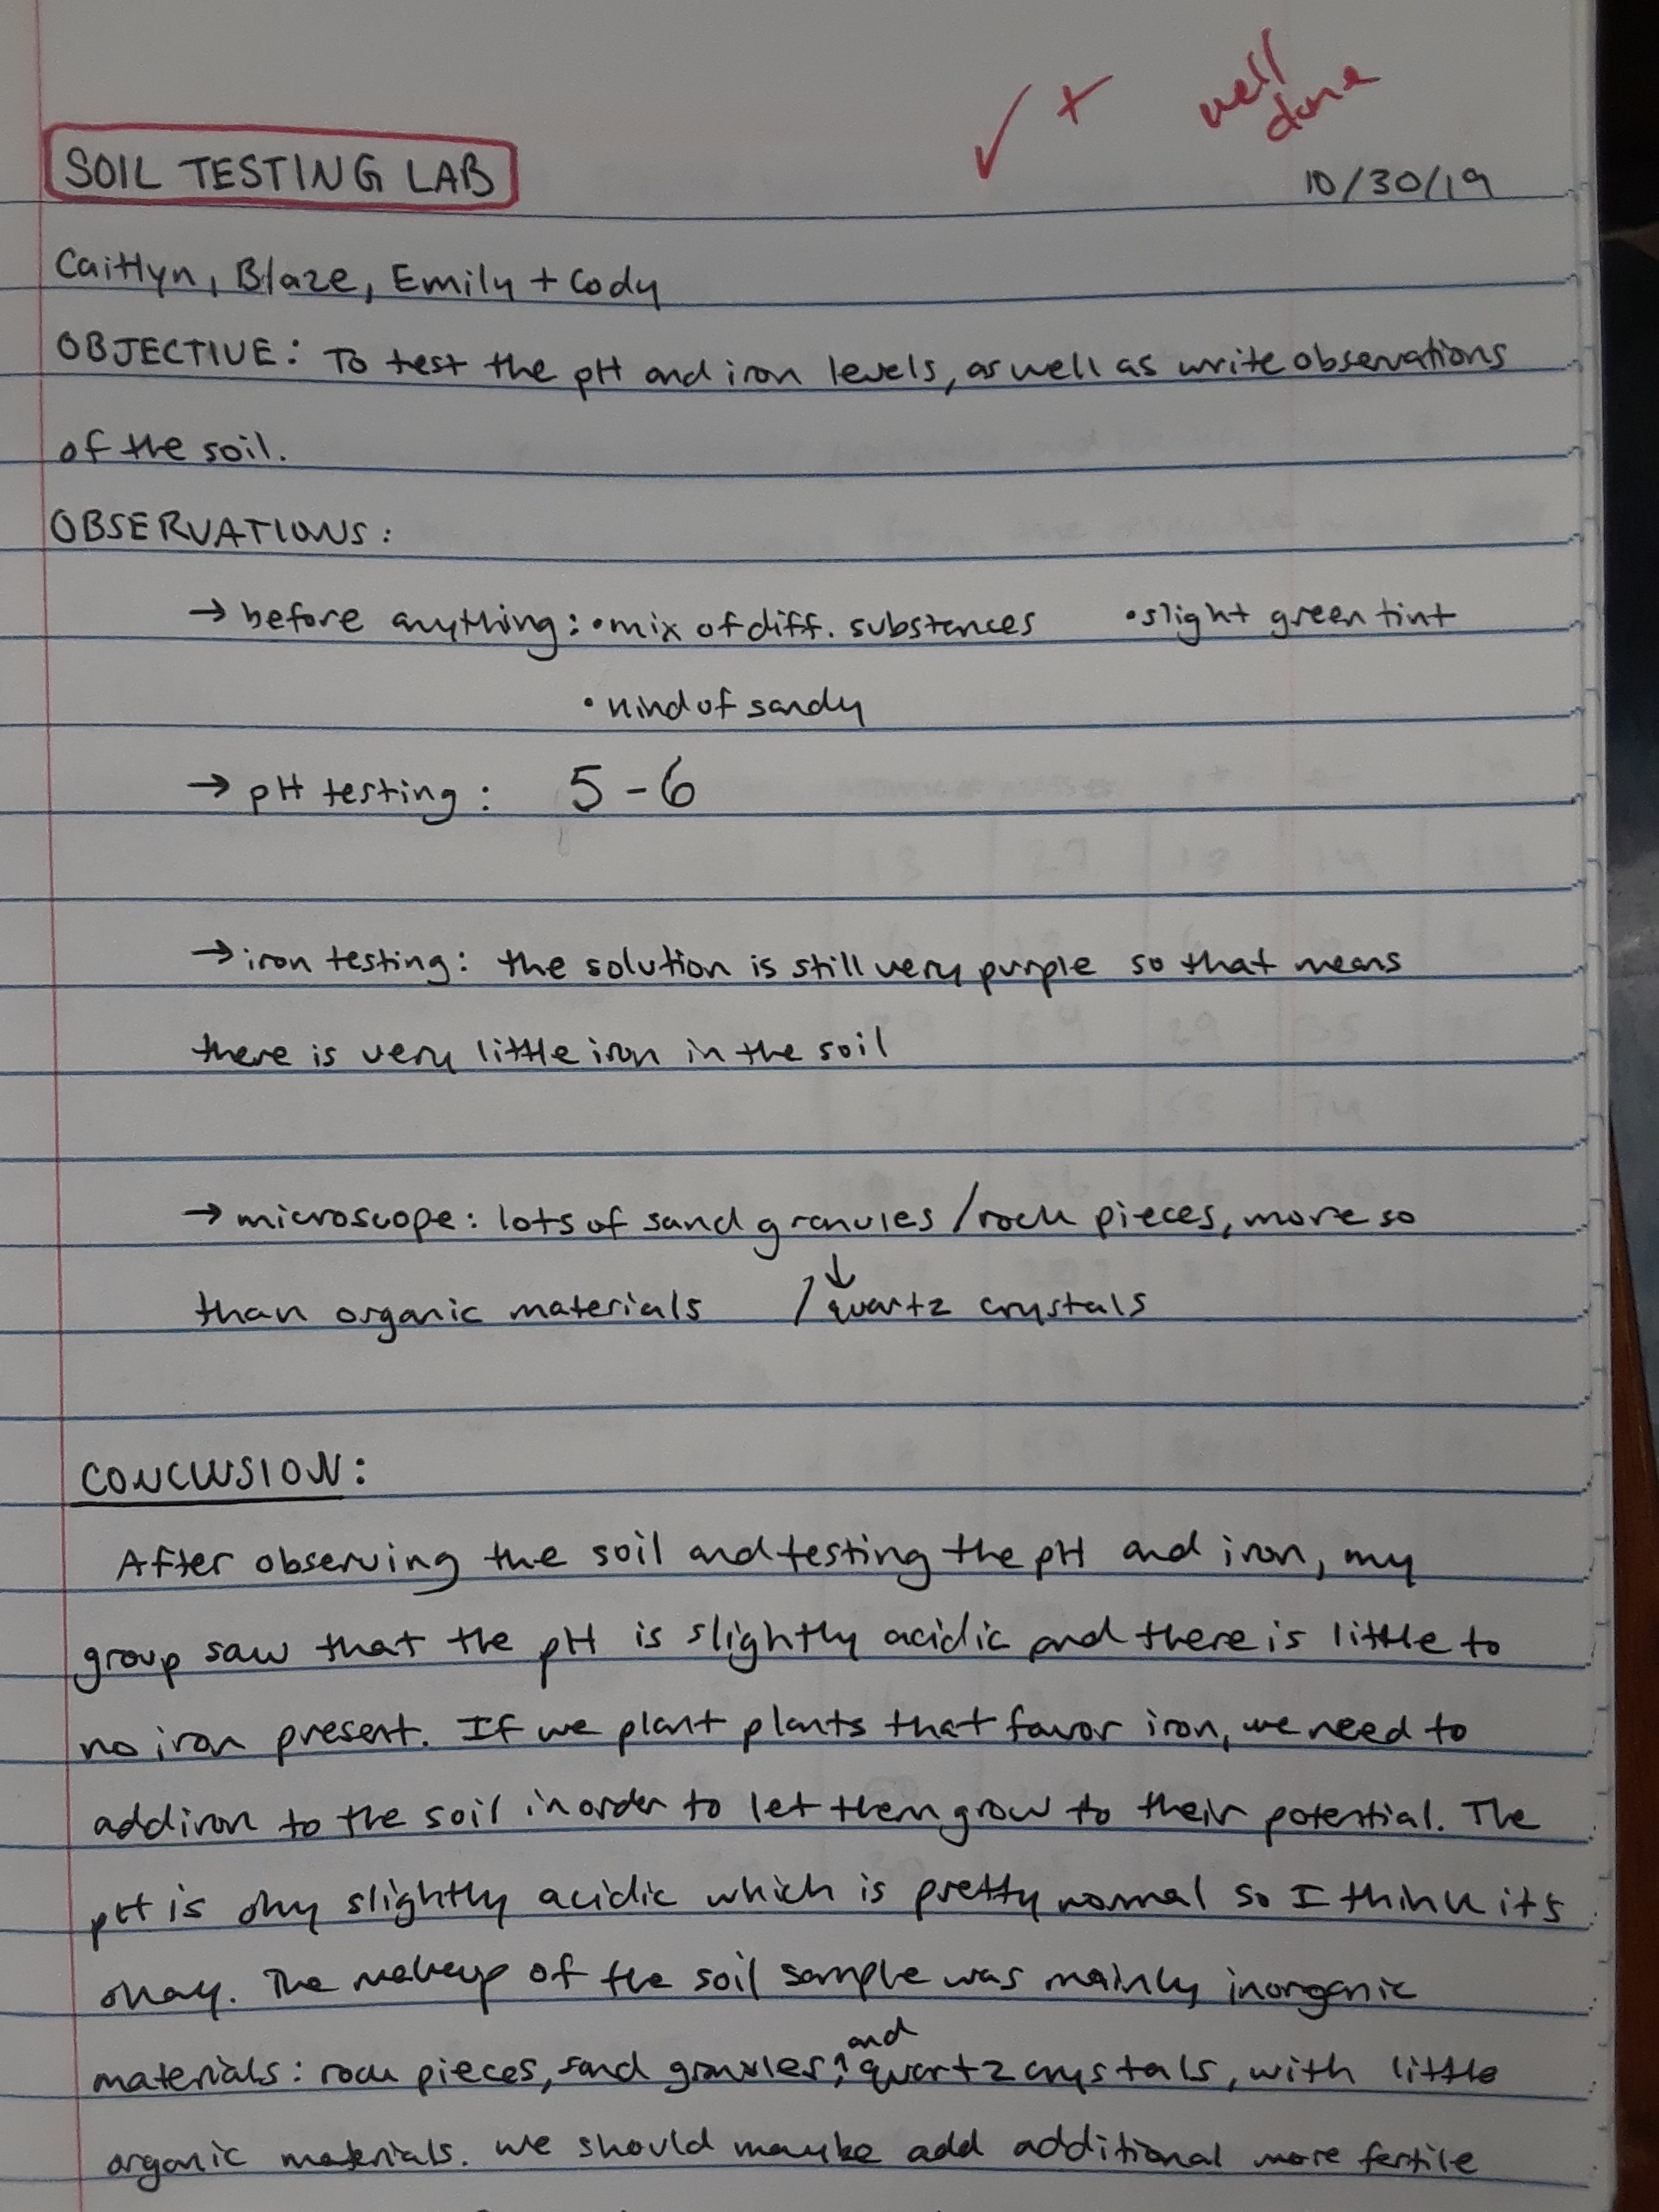 ✓+ well done
SOIL TESTING LAB 10/30/19
Caitlyn, Blaze, Emily + Cody
OBJECTIVE: To test the pH and iron levels, as well as write observations
of the soil.
OBSERVATIONS:
→ before anything: • mix of diff. substances • slight green tint
• kind of sandy
→ pH testing: 5-6
→ iron testing: the solution is still very purple so that means
there is very little iron in the soil
→ microscope: lots of sand granules / rock pieces, more so
than organic materials / ↓ quartz crystals
CONCLUSION:
After observing the soil and testing the pH and iron, my
group saw that the pH is slightly acidic and there is little to
no iron present. If we plant plants that favor iron, we need to
add iron to the soil in order to let them grow to their potential. The
pH is only slightly acidic which is pretty normal so I think its
okay. The makeup of the soil sample was mainly inorganic
materials: rock pieces, sand granules, and quartz crystals, with little
organic materials. We should maybe add additional more fertile